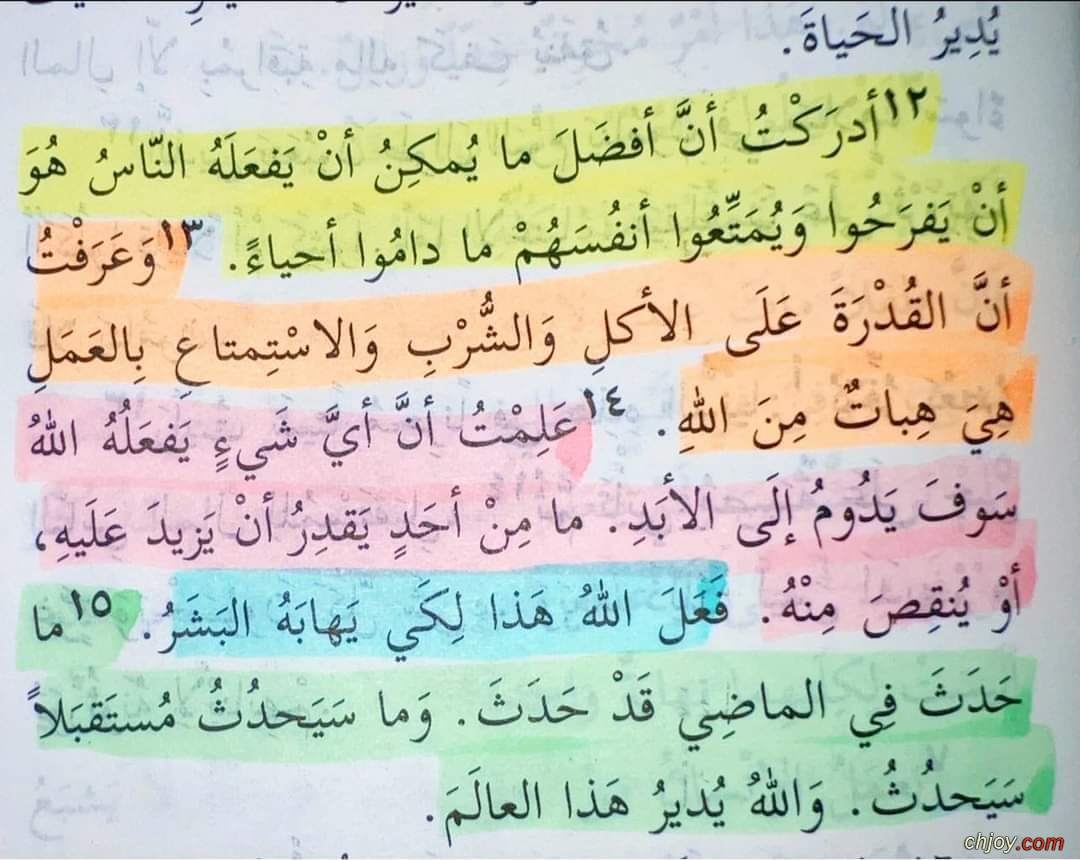 يُدِيرُ الحَياةَ.
١٢ أدرَكْتُ أنَّ أفضَلَ ما يُمكِنُ أنْ يَفعَلَهُ النّاسُ هُوَ
أنْ يَفرَحُوا وَيُمَتِّعُوا أنفُسَهُمْ ما دامُوا أحياءً. ١٣ وَعَرَفْتُ
أنَّ القُدْرَةَ عَلَى الأكلِ وَالشُّرْبِ وَالاسْتِمتاعِ بِالعَمَلِ
هِيَ هِباتٌ مِنَ اللهِ. ١٤ عَلِمْتُ أنَّ أيَّ شَيءٍ يَفعَلُهُ اللهُ
سَوفَ يَدُومُ إلَى الأبَدِ. ما مِنْ أحَدٍ يَقدِرُ أنْ يَزِيدَ عَلَيهِ،
أوْ يُنقِصَ مِنْهُ. فَعَلَ اللهُ هَذا لِكَي يَهابَهُ البَشَرُ. ١٥ ما
حَدَثَ فِي الماضِي قَدْ حَدَثَ. وَما سَيَحدُثُ مُستَقبَلاً
سَيَحدُثُ. وَاللهُ يُدِيرُ هَذا العالَمَ.
chjoy.com